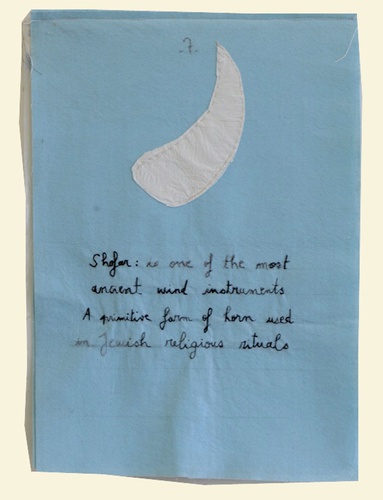 7
Shofar: is one of the most
ancient wind instruments
A primitive form of horn used
in Jewish religious rituals